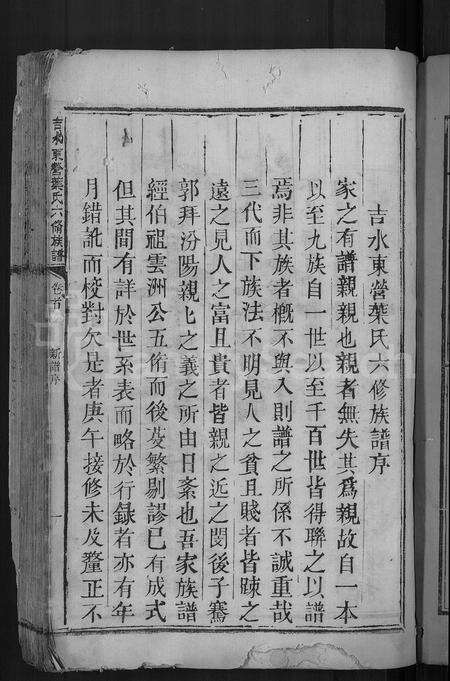 吉水東營葉氏六修族譜序
家之有譜親親也親者無失其爲親故自一本
以至九族自一世以至千百世皆得聯之以譜
焉非其族者槪不與入則譜之所係不誠重哉
三代而下族法不明見人之貧且賤者皆踈之
遠之見人之富且貴者皆親之近之閔後子騫
郭拜汾陽親匕之義之所由日紊也吾家族譜
經伯祖雲洲公五脩而後芟繁剔謬已有成式
但其間有詳於世系表而略於行録者亦有年
月錯訛而校對欠是者庚午接修未及釐正不
吉水東營葉氏六脩族譜
卷首
新譜序
一